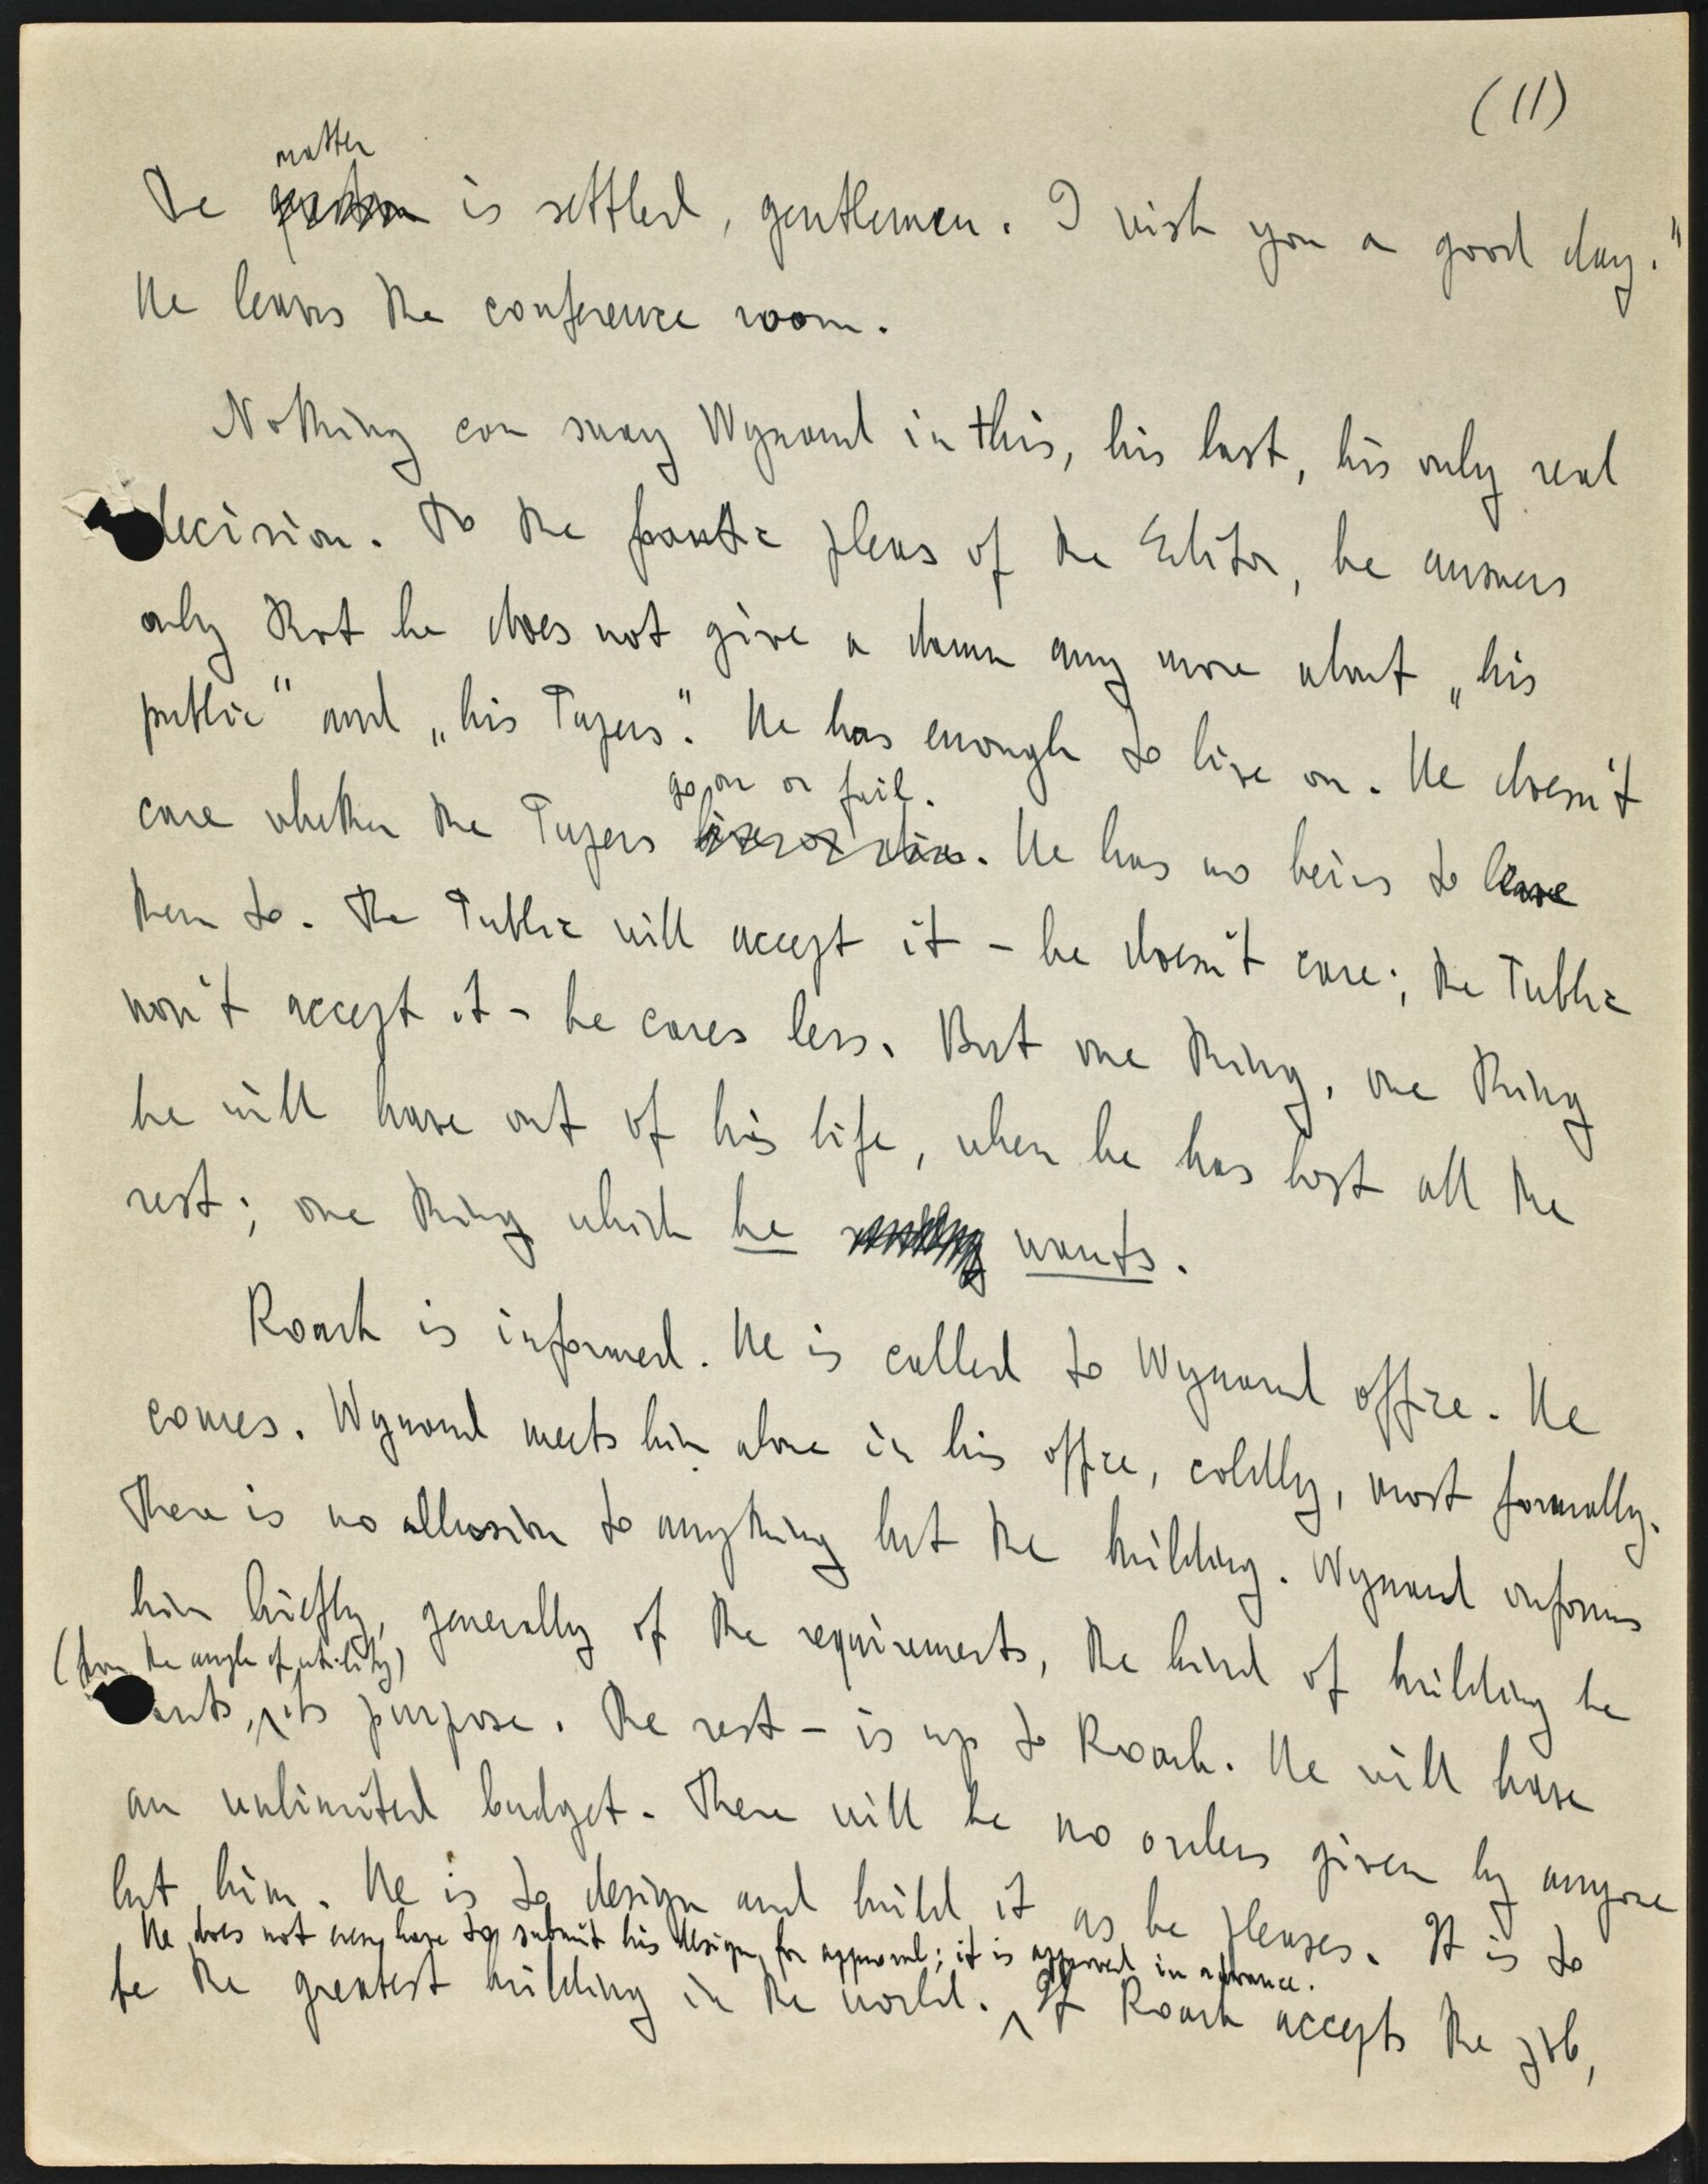 (11)
matter
The question is settled, gentlemen. I wish you a good day."
He leaves the conference room.
Nothing can sway Wynand in this, his last, his only real
decision. To the frantic pleas of the Editor, he answers
only that he does not give a damn any more about „his
public" and „his Papers." He has enough to live on. He doesn't
go on or fail.
care whether the Papers live or die. He has no heirs to leave
them to. The Public will accept it - he doesn't care; the Public
won't accept it - he cares less. But one thing, one thing
he will have out of his life, when he has lost all the
rest; one thing which he wants.
Roark is informed. He is called to Wynand office. He
comes. Wynand meets him alone in his office, coldly, most formally.
There is no allusion to anything but the building. Wynand informs
him briefly, generally of the requirements, the kind of building he
(from the angle of utility)
wants, its purpose. The rest - is up to Roark. He will have
an unlimited budget. There will be no orders given by anyone
but him. He is to design and build it as he pleases. It is to
He does not even have to submit his design for approval; it is approved in advance.
be the greatest building in the world. If Roark accepts the job,